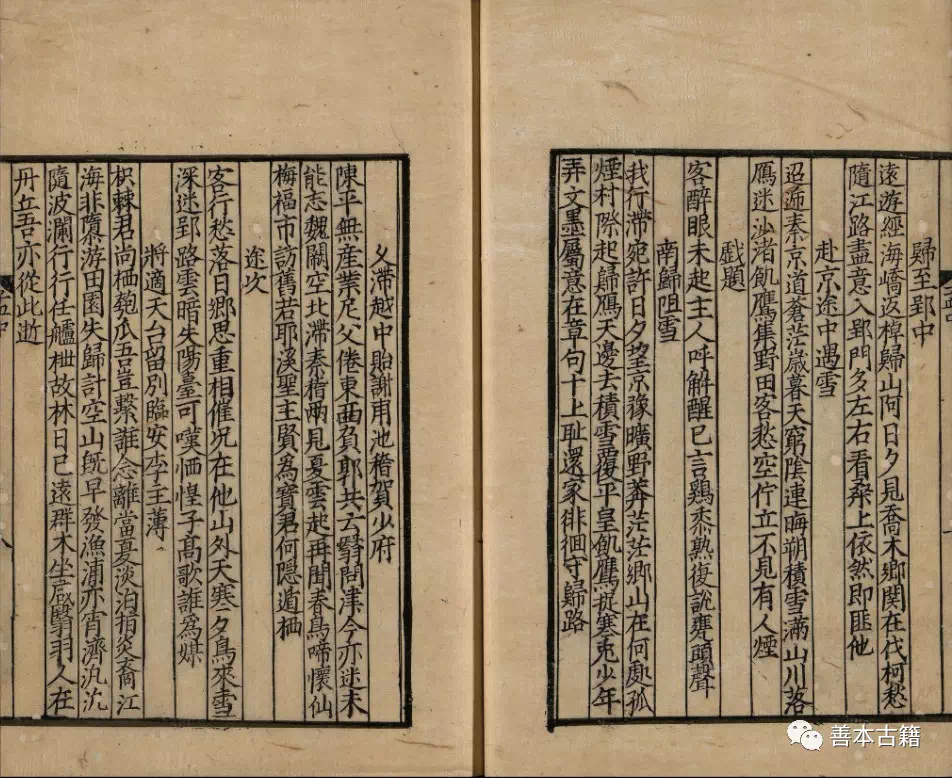 歸至郢中
遠遊經海嶠返棹歸山阿日夕見喬木鄉関在伐柯愁
隨江路盡意入郢門多左右看桑土依然即匪他
赴京途中遇雪
迢遞秦京道蒼茫歲暮天窮陰連晦朔積雪滿山川落
鴈迷沙渚飢鷹集野田客愁空佇立不見有人煙
戲題
客醉眠未起主人呼解酲已言鷄黍熟復說甕頭聲
南歸阻雪
我行滯宛許日夕望京豫曠野莽茫茫鄉山在何處孤
煙村際起歸鴈天邊去積雪覆平皋飢鷹捉寒兎少年
弄文墨屬意在章句十上耻還家徘徊守歸路
久滯越中貽謝甫池稽賀少府
陳平無産業尼父倦東西負郭共云翳問津今亦迷未
能忘魏闕空此滯秦稽兩見夏雲起再聞春鳥啼懷仙
梅福市訪舊若耶溪聖主賢為寶君何隱遁栖
途次
客行愁落日鄉思重相催况在他山外天寒夕鳥來雪
深迷郢路雲暗失陽臺可嘆悽惶子高歌誰為媒
將適天台留別臨安李主薄
枳棘君尚栖匏瓜吾豈繫誰念離當夏淡泊指炎裔江
海非隳游田園失歸計空山既早發漁浦亦宵濟汎汎
隨波瀾行行任艫枻故林日已遠群木坐成翳羽人在
丹丘吾亦從此逝
善本古籍